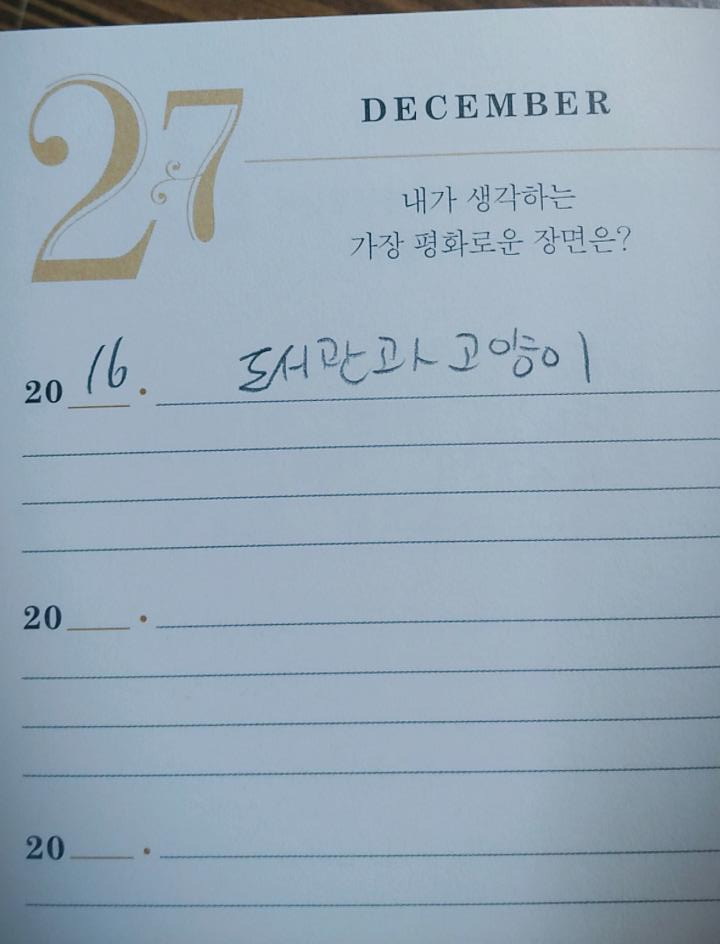 27
DECEMBER
내가 생각하는
가장 평화로운 장면은?
2016. 도서관과 고양이
20__.
20__.